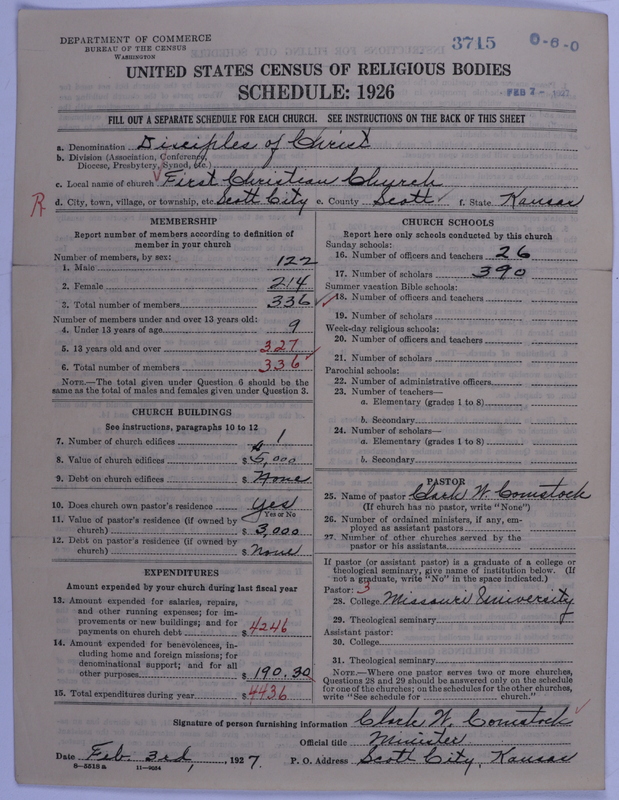 DEPARTMENT OF COMMERCE
BUREAU OF THE CENSUS
WASHINGTON
3715
0-6-0
UNITED STATES CENSUS OF RELIGIOUS BODIES
SCHEDULE: 1926
FEB 7 - 1927
FILL OUT A SEPARATE SCHEDULE FOR EACH CHURCH. SEE INSTRUCTIONS ON THE BACK OF THIS SHEET
a. Denomination Disciples of Christ
b. Division (Association, Conference, Diocese, Presbytery, Synod, etc.)
c. Local name of church First Christian Church
R
d. City, town, village, or township, etc. Scott City e. County Scott f. State Kansas
MEMBERSHIP
Report number of members according to definition of
member in your church
Number of members, by sex:
1. Male 122
2. Female 214
3. Total number of members 336
Number of members under and over 13 years old:
4. Under 13 years of age 9
5. 13 years old and over 327
6. Total number of members 336
NOTE.—The total given under Question 6 should be
same as the total of males and females given under Question 3.
CHURCH BUILDINGS
See instructions, paragraphs 10 to 12
7. Number of church edifices 1
8. Value of church edifices $ 5,000
9. Debt on church edifices $ None
10. Does church own pastor's residence Yes
Yes or No
11. Value of pastor's residence (if owned by
church) $ 3,000
12. Debt on pastor's residence (if owned by
church) $ None
EXPENDITURES
Amount expended by your church during last fiscal year
13. Amount expended for salaries, repairs,
and other running expenses; for im-
provements or new buildings; and for
payments on church debt $ 4246
14. Amount expended for benevolences, in-
cluding home and foreign missions; for
denominational support; and for all
other purposes $ 190.30
15. Total expenditures during year $ 4436
CHURCH SCHOOLS
Report here only schools conducted by this church
Sunday schools:
16. Number of officers and teachers 26
17. Number of scholars 390
Summer vacation Bible schools:
18. Number of officers and teachers
19. Number of scholars
Week-day religious schools:
20. Number of officers and teachers
21. Number of scholars
Parochial schools:
22. Number of administrative officers
23. Number of teachers—
a. Elementary (grades 1 to 8)
b. Secondary
24. Number of scholars—
a. Elementary (grades 1 to 8)
b. Secondary
PASTOR
25. Name of pastor Clark W. Comstock
(If church has no pastor, write "None")
26. Number of ordained ministers, if any, em-
ployed as assistant pastors
27. Number of other churches served by the
pastor or his assistants
If pastor (or assistant pastor) is a graduate of a college or
theological seminary, give name of institution below. (If
not a graduate, write "No" in the space indicated.)
Pastor: 3
28. College Missouri University
29. Theological seminary
Assistant pastor:
30. College
31. Theological seminary
NOTE.—Where one pastor serves two or more churches,
Questions 28 and 29 should be answered only on the schedule
for one of the churches; on the schedules for the other churches,
write "See schedule for church."
Signature of person furnishing information Clark W. Comstock
Official title Minister
Date Feb. 3rd, 1927. P. O. Address Scott City, Kansas
8-5518 a 11-9084